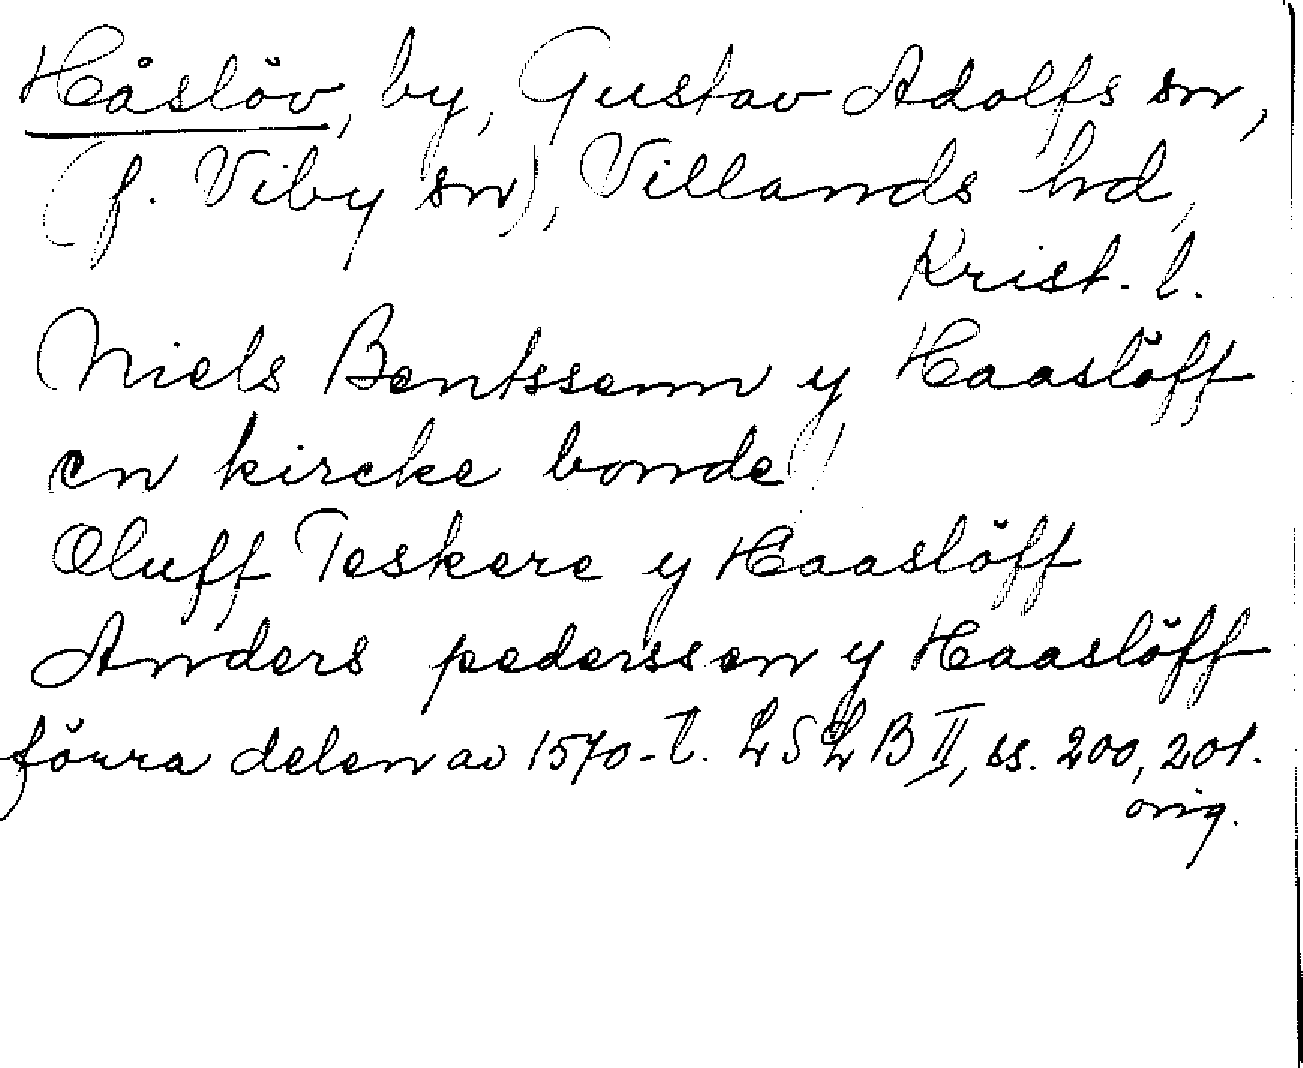 Håslöv, by, Gustav Adolfs sn,
(f. Viby sn), Villands hd,
Krist. l.
Niels Bentssenn y Haaslöff
en kircke bonde!
Oluff Teskere y Haaslöff
Anders pederssen y Haaslöff
förra delen av 1570-t. LSLB II, ss. 200, 201.
orig.